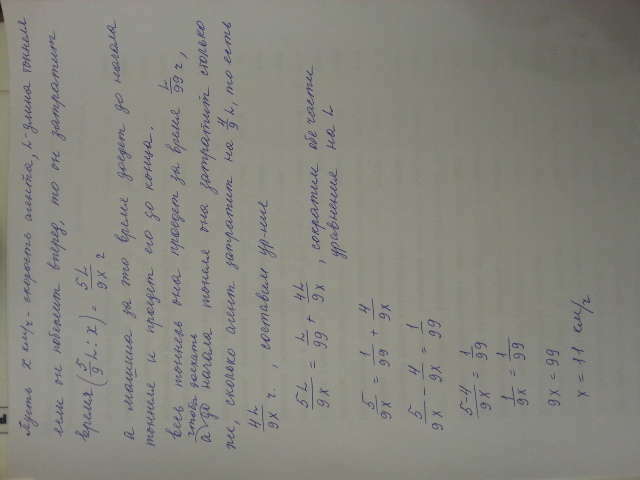 Пусть x км/ч - скорость агента, L-длина тоннеля
если он побежит вперед, то он затратит
время (5/9 L : x) = 5L/9x ч
а машина за это время доедет до начала
тоннеля и проедет его до конца.
весь тоннель она проедет за время L/99 ч,
чтобы доехать
а до начала тоннеля она затратит столько
же, сколько агент затратит на 4/9 L, то есть
4L/9x ч. , составим ур-ние
5L/9x = L/99 + 4L/9x , сократим обе части
уравнения на L
5/9x = 1/99 + 4/9x
5/9x - 4/9x = 1/99
5-4/9x = 1/99
1/9x = 1/99
9x = 99
x = 11 км/ч